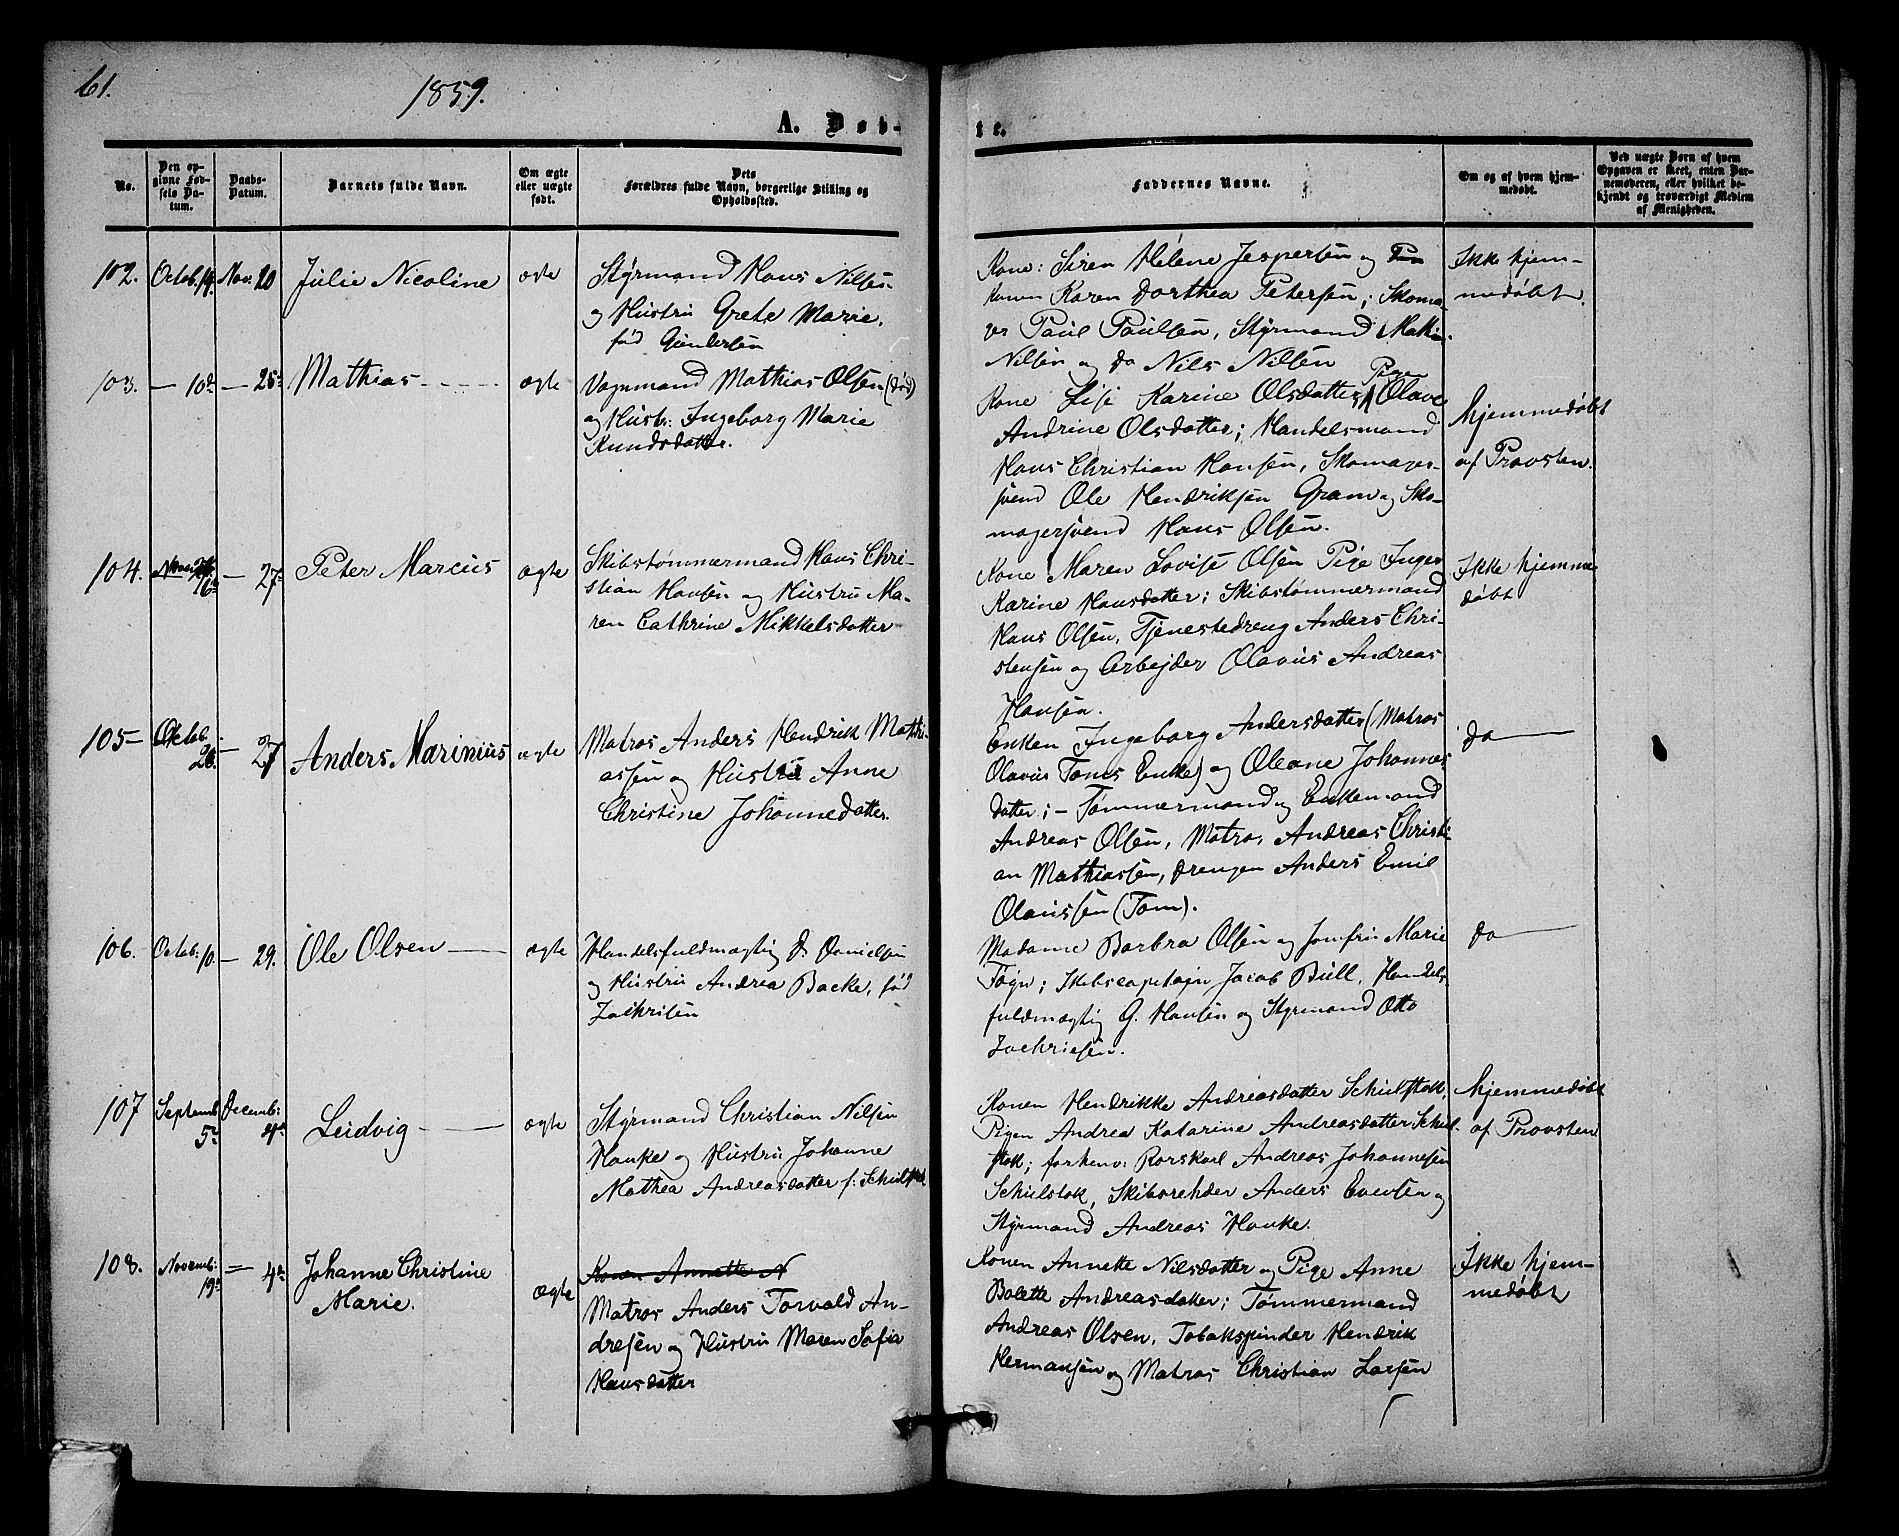 61.
1859.
A. Døb-
te.
No.
Den op-
givne Fød-
sels Da-
tum.
Daabs-
Datum.
Barnets fulde Navn.
Om ægte
eller uægte
født.
Dets
Forældres fulde Navn, borgerlige Stilling og
Opholdssted.
Faddernes Navne.
Om og af hvem hjem-
medøbt.
Ved uægte Børn af hvem
Opgaven er skeet, enten Bar-
nemoderen, eller hvilket be-
kjendt og troværdigt Medlem
af Menigheden.
102. Octob. 19. Nov. 20 Julie Nicoline ægte
Styrmand Hans Nilsen
og Hustru Grete Marie.
fød Gundersen
Kone: Siren Helene Jespersen og
konen Karen Dorthea Petersen; Skoma-
ger Paul Paulsen, Styrmand
Nilsen og do Nils Nilsen
Ikke hjem-
medøbt.
103. — 10de — 25de Mathias ægte
Vognmand Mathias Olsen (død)
og Hustr: Ingeborg Marie
Knudsdatter.
Kone Lise Karine Olsdatter, Pige Olave
Andrine Olsdatter; Handelsmand
Hans Christian Hansen, Skomager-
svend Ole Hendriksen Gram og Sko-
magersvend Hans Olsen.
hjemmedøbt
af Provsten.
104. 16de — 27de Peter Marcus ægte
Skibstømmermand Hans Chri-
stian Hansen og Hustru Ma-
ren Cathrine Mikkelsdatter
Kone Maren Lovise Olsen Pige Inger
Karine Hansdatter; Skibstømmermand
Hans Olsen, Tjenestedreng Anders Chri-
stensen og Arbejder Olavus Andreas
Hansen.
Ikke hjemme
døbt
105 — Oktob. 26. — 27 Anders Marinius ægte
Matros Anders Hendrik Mathi-
assen og Hustru Anne
Christine Johannedatter.
Enken Ingeborg Andersdatter (Matros
Olavus Toms Enke) og Oleane Johannes
datter; — Tømmermand og Enkemand
Andreas Olsen, Matros Andreas Christi-
an Mathiassen, Drengen Anders Emil
Olaussen (Tom).
do
106. Octob. 10. — 29. Ole Olsen ægte
Handelsfuldmægtig D. Danielsen
og Hustru Andrea Backe, fød
Zachrisen
Madame Barbra Olsen og Jomfru Marie
Tøgn; Skibscapitajn Jacob Bull, Handels
fuldmægtig G. Hansen og Styrmand Otto
Zachriesen.
do
107 Septemb. 5te Decemb: 4de Ludvig ægte
Styrmand Christian Nilsen
Hauke og Hustru Johanne
Mathea Andreasdatter f. Schulstok
Konen Hendrikke Andreasdatter Schulstok,
Pigen Andrea Katarine Andreasdatter Schul-
stok; forhenv: Rorskarl Andreas Johannesen
Schulstok, Skibsreder Anders Evensen og
Styrmand Andreas Hauke.
hjemmedøbt
af Provsten
108. Novemb: 19de — 4de Johanne Christine
Marie. ægte
Konen Annette N
Matros Anders Torvald An-
dresen og Hustru Maren Sofia
Hansdatter
Konen Annette Nilsdatter og Pige Anne
Bolette Andreasdatter; Tømmermand
Andreas Olsen, Tobakspinder Hendrik
Hermansen og Matros Christian Larsen
Ikke hjem-
medøbt